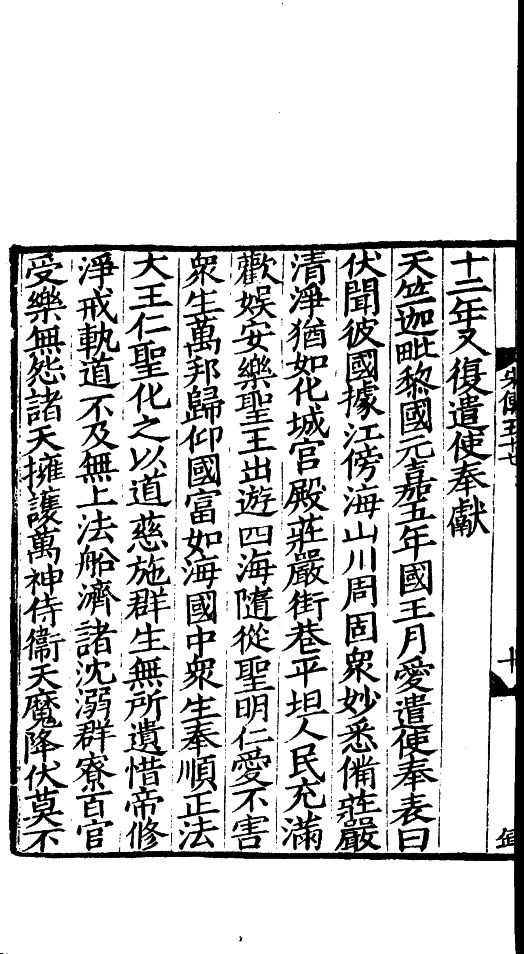 宋傳五十七
十
十二年又復遣使奉獻
天竺迦毗黎國元嘉五年國王月愛遣使奉表曰
伏聞彼國據江傍海山川周固衆妙悉備莊嚴
清淨猶如化城宫殿莊嚴街巷平坦人民充滿
歡娯安樂聖王出遊四海隨從聖明仁愛不害
衆生萬邦歸仰國富如海國中衆生奉順正法
大王仁聖化之以道慈施群生無所遺惜帝修
淨戒軌道不及無上法船濟諸沈溺群寮百官
受樂無怨諸天擁護萬神侍衞天魔降伏莫不